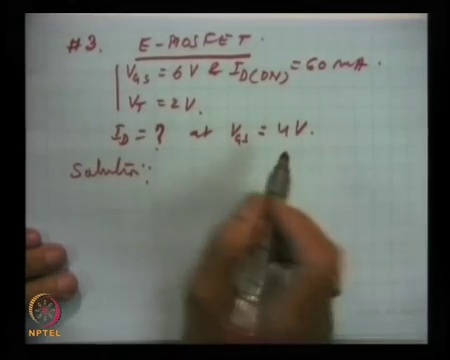 #3. E-MOSFET.
V_GS = 6 V & I_D(ON) = 60 mA.
V_T = 2 V.
I_D = ? at V_GS = 4 V.
Solution:
NPTEL